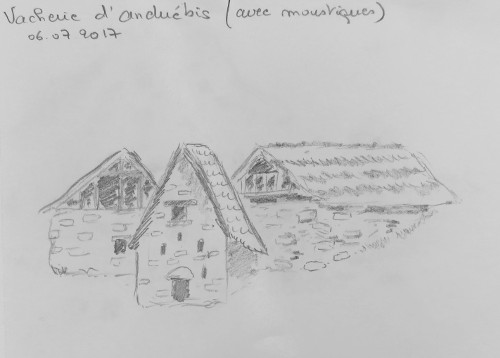 Vacherie d'anduébis (avec moustiques)
06.07 2017